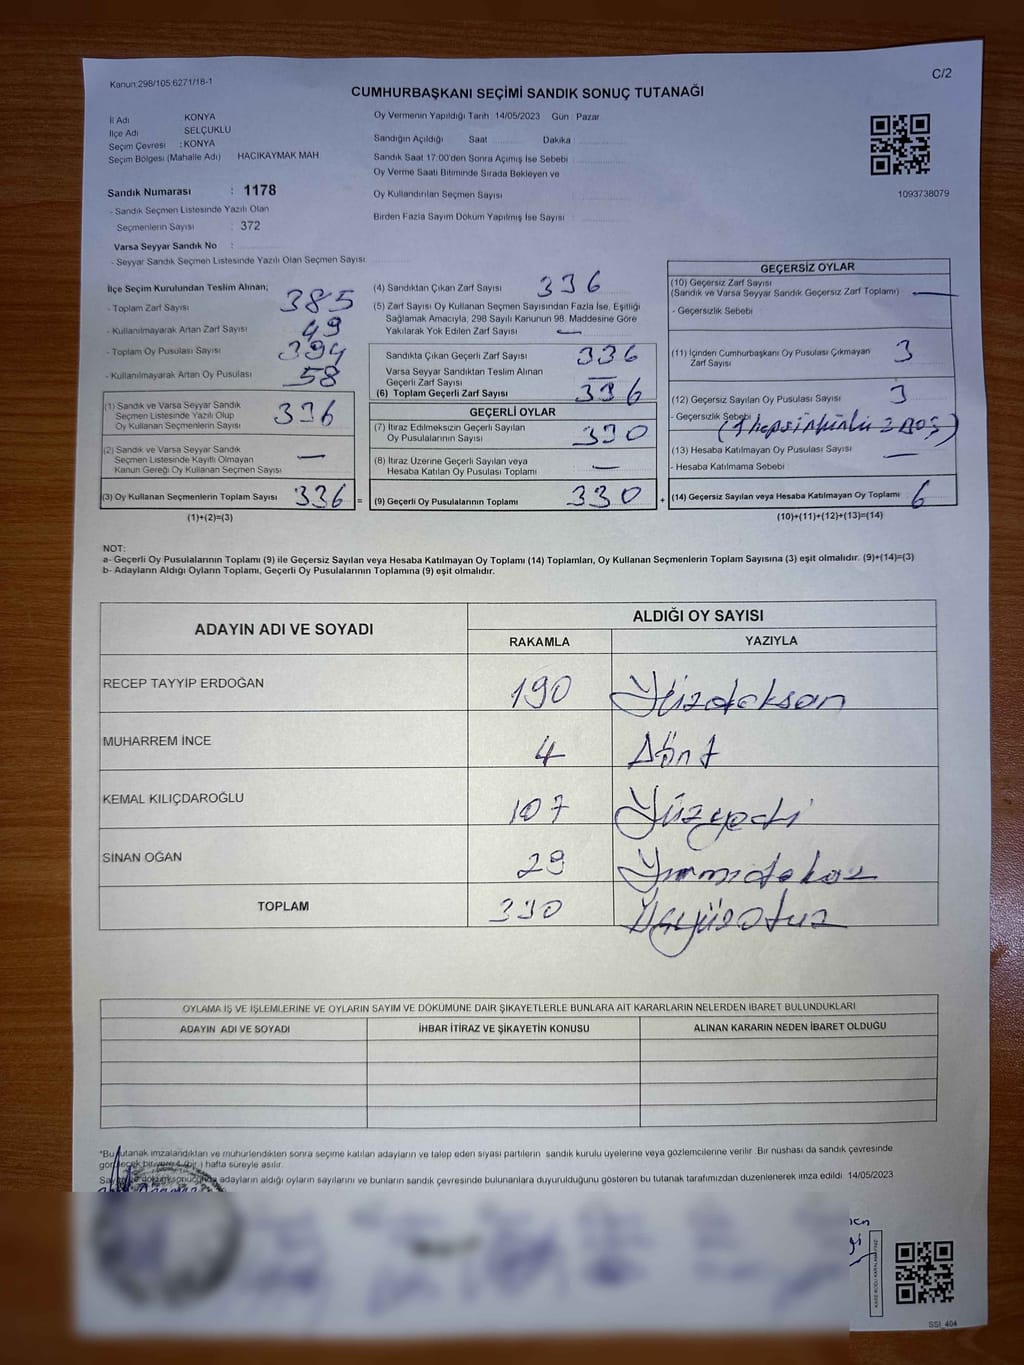 Kanun:298/105:6271/18-1
C/2
CUMHURBAŞKANI SEÇİMİ SANDIK SONUÇ TUTANAĞI
İl Adı KONYA
İlçe Adı SELÇUKLU
Seçim Çevresi : KONYA
Seçim Bölgesi (Mahalle Adı) HACIKAYMAK MAH
Sandık Numarası : 1178
- Sandık Seçmen Listesinde Yazılı Olan
Seçmenlerin Sayısı : 372
Varsa Seyyar Sandık No :
- Seyyar Sandık Seçmen Listesinde Yazılı Olan Seçmen Sayısı:
Oy Vermenin Yapıldığı Tarih 14/05/2023 Gün : Pazar
Sandığın Açıldığı Saat Dakika :
Sandık Saat 17:00'den Sonra Açımış İse Sebebi :
Oy Verme Saati Bitiminde Sırada Bekleyen ve
Oy Kullandırılan Seçmen Sayısı :
Birden Fazla Sayım Döküm Yapılmış İse Sayısı :
1093738079
İlçe Seçim Kurulundan Teslim Alınan;
- Toplam Zarf Sayısı 385
- Kullanılmayarak Artan Zarf Sayısı 49
- Toplam Oy Pusulası Sayısı 394
- Kullanılmayarak Artan Oy Pusulası 58
(1) Sandık ve Varsa Seyyar Sandık
Seçmen Listesinde Yazılı Olup
Oy Kullanan Seçmenlerin Sayısı 336
(2) Sandık ve Varsa Seyyar Sandık
Seçmen Listesinde Kayıtlı Olmayan
Kanun Gereği Oy Kullanan Seçmen Sayısı —
(3) Oy Kullanan Seçmenlerin Toplam Sayısı 336 =
(1)+(2)=(3)
(4) Sandıktan Çıkan Zarf Sayısı 336
(5) Zarf Sayısı Oy Kullanan Seçmen Sayısından Fazla İse, Eşitliği
Sağlamak Amacıyla, 298 Sayılı Kanunun 98. Maddesine Göre
Yakılarak Yok Edilen Zarf Sayısı —
Sandıkta Çıkan Geçerli Zarf Sayısı 336
Varsa Seyyar Sandıktan Teslim Alınan
Geçerli Zarf Sayısı —
(6) Toplam Geçerli Zarf Sayısı 336
GEÇERLİ OYLAR
(7) İtiraz Edilmeksizin Geçerli Sayılan
Oy Pusulalarının Sayısı 330
(8) İtiraz Üzerine Geçerli Sayılan veya
Hesaba Katılan Oy Pusulaları Toplamı —
(9) Geçerli Oy Pusulalarının Toplamı 330 +
GEÇERSİZ OYLAR
(10) Geçersiz Zarf Sayısı
(Sandık ve Varsa Seyyar Sandık Geçersiz Zarf Toplamı) —
- Geçersizlik Sebebi
(11) İçinden Cumhurbaşkanı Oy Pusulası Çıkmayan
Zarf Sayısı 3
(12) Geçersiz Sayılan Oy Pusulası Sayısı 3
- Geçersizlik Sebebi
(13) Hesaba Katılmayan Oy Pusulası Sayısı —
- Hesaba Katılmama Sebebi
(14) Geçersiz Sayılan veya Hesaba Katılmayan Oy Toplamı 6
(10)+(11)+(12)+(13)=(14)
NOT:
a- Geçerli Oy Pusulalarının Toplamı (9) ile Geçersiz Sayılan veya Hesaba Katılmayan Oy Toplamı (14) Toplamları, Oy Kullanan Seçmenlerin Toplam Sayısına (3) eşit olmalıdır. (9)+(14)=(3)
b- Adayların Aldığı Oyların Toplamı, Geçerli Oy Pusulalarının Toplamına (9) eşit olmalıdır.
ADAYIN ADI VE SOYADI ALDIĞI OY SAYISI
RAKAMLA YAZIYLA
RECEP TAYYİP ERDOĞAN 190 Yüzdoksan
MUHARREM İNCE 4 Dört
KEMAL KILIÇDAROĞLU 107 Yüzyedi
SİNAN OĞAN 29 Yirmidokuz
TOPLAM 330 Üçyüzotuz
OYLAMA İŞ VE İŞLEMLERİNE VE OYLARIN SAYIM VE DÖKÜMÜNE DAİR ŞİKAYETLERLE BUNLARA AİT KARARLARIN NELERDEN İBARET BULUNDUKLARI
ADAYIN ADI VE SOYADI İHBAR İTİRAZ VE ŞİKAYETİN KONUSU ALINAN KARARIN NEDEN İBARET OLDUĞU
*Bu tutanak imzalandıktan ve mühürlendikten sonra seçime katılan adayların ve talep eden siyasi partilerin sandık kurulu üyelerine veya gözlemcilerine verilir. Bir nüshası da sandık çevresinde
hafta süreyle asılır.
adayların aldığı oyların sayılarını ve bunların sandık çevresinde bulunanlara duyurulduğunu gösteren bu tutanak tarafımızdan düzenlenerek imza edildi 14/05/2023
SSİ_404